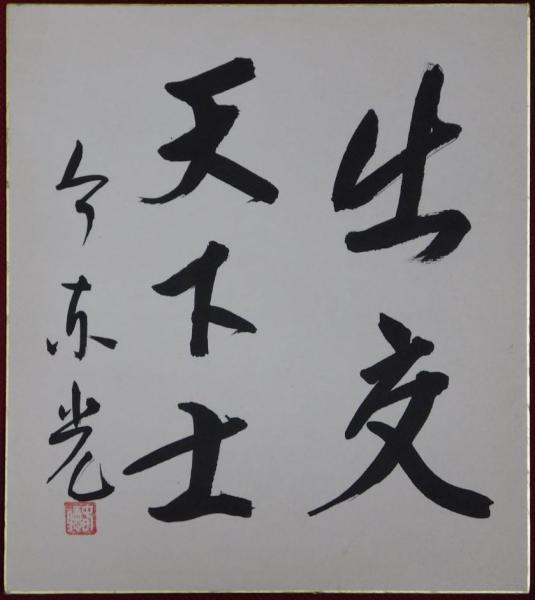 出交
天下士
今東光